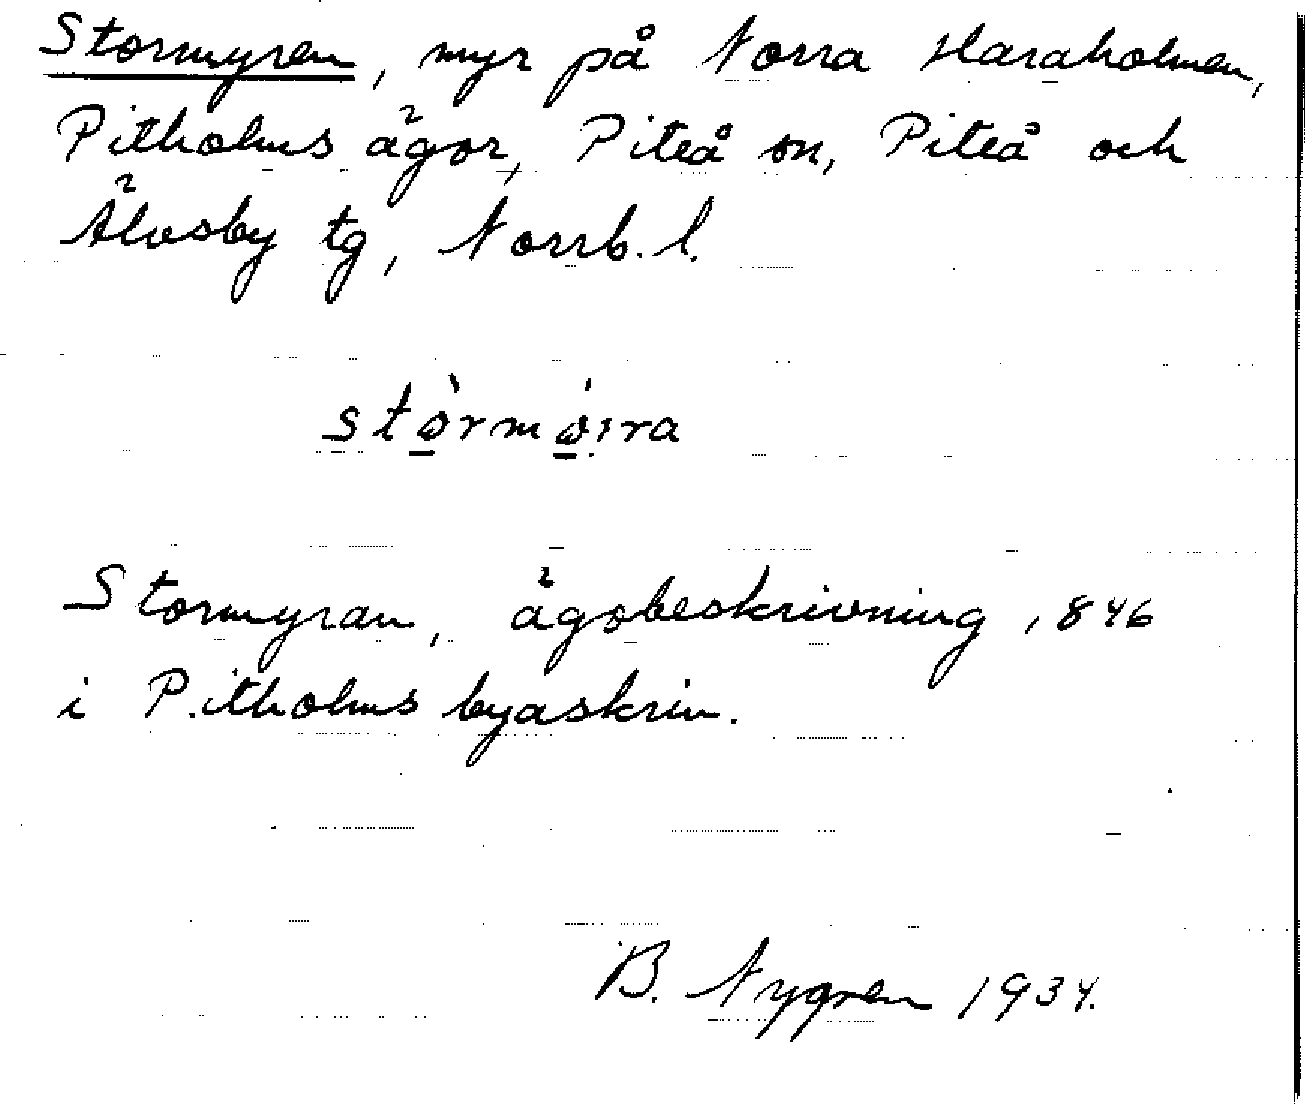 Stormyren, myr på Norra Haraholmen,
Pitholms ägor, Piteå sn, Piteå och
Älvsby tg, Norrb. l.
stø̀rmǿira
Stormyran, ägobeskrivning 1846
i Pitholms byaskrin.
B. Nygren 1934.